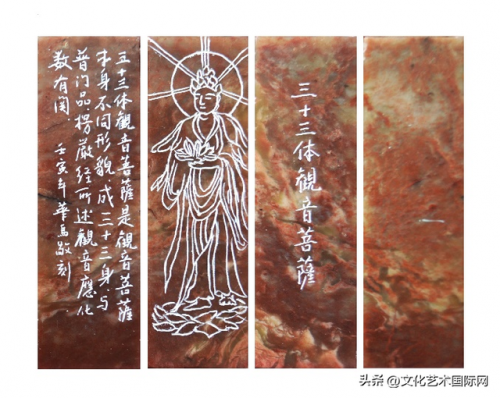 五十三体觀音菩薩是觀音菩薩
本身不同形貌、成三十三身、与
普门品、楞嚴经所述觀音應化
数有関
壬寅年華馬敬刻
三十三体觀音菩薩
头条@文化艺术国际网